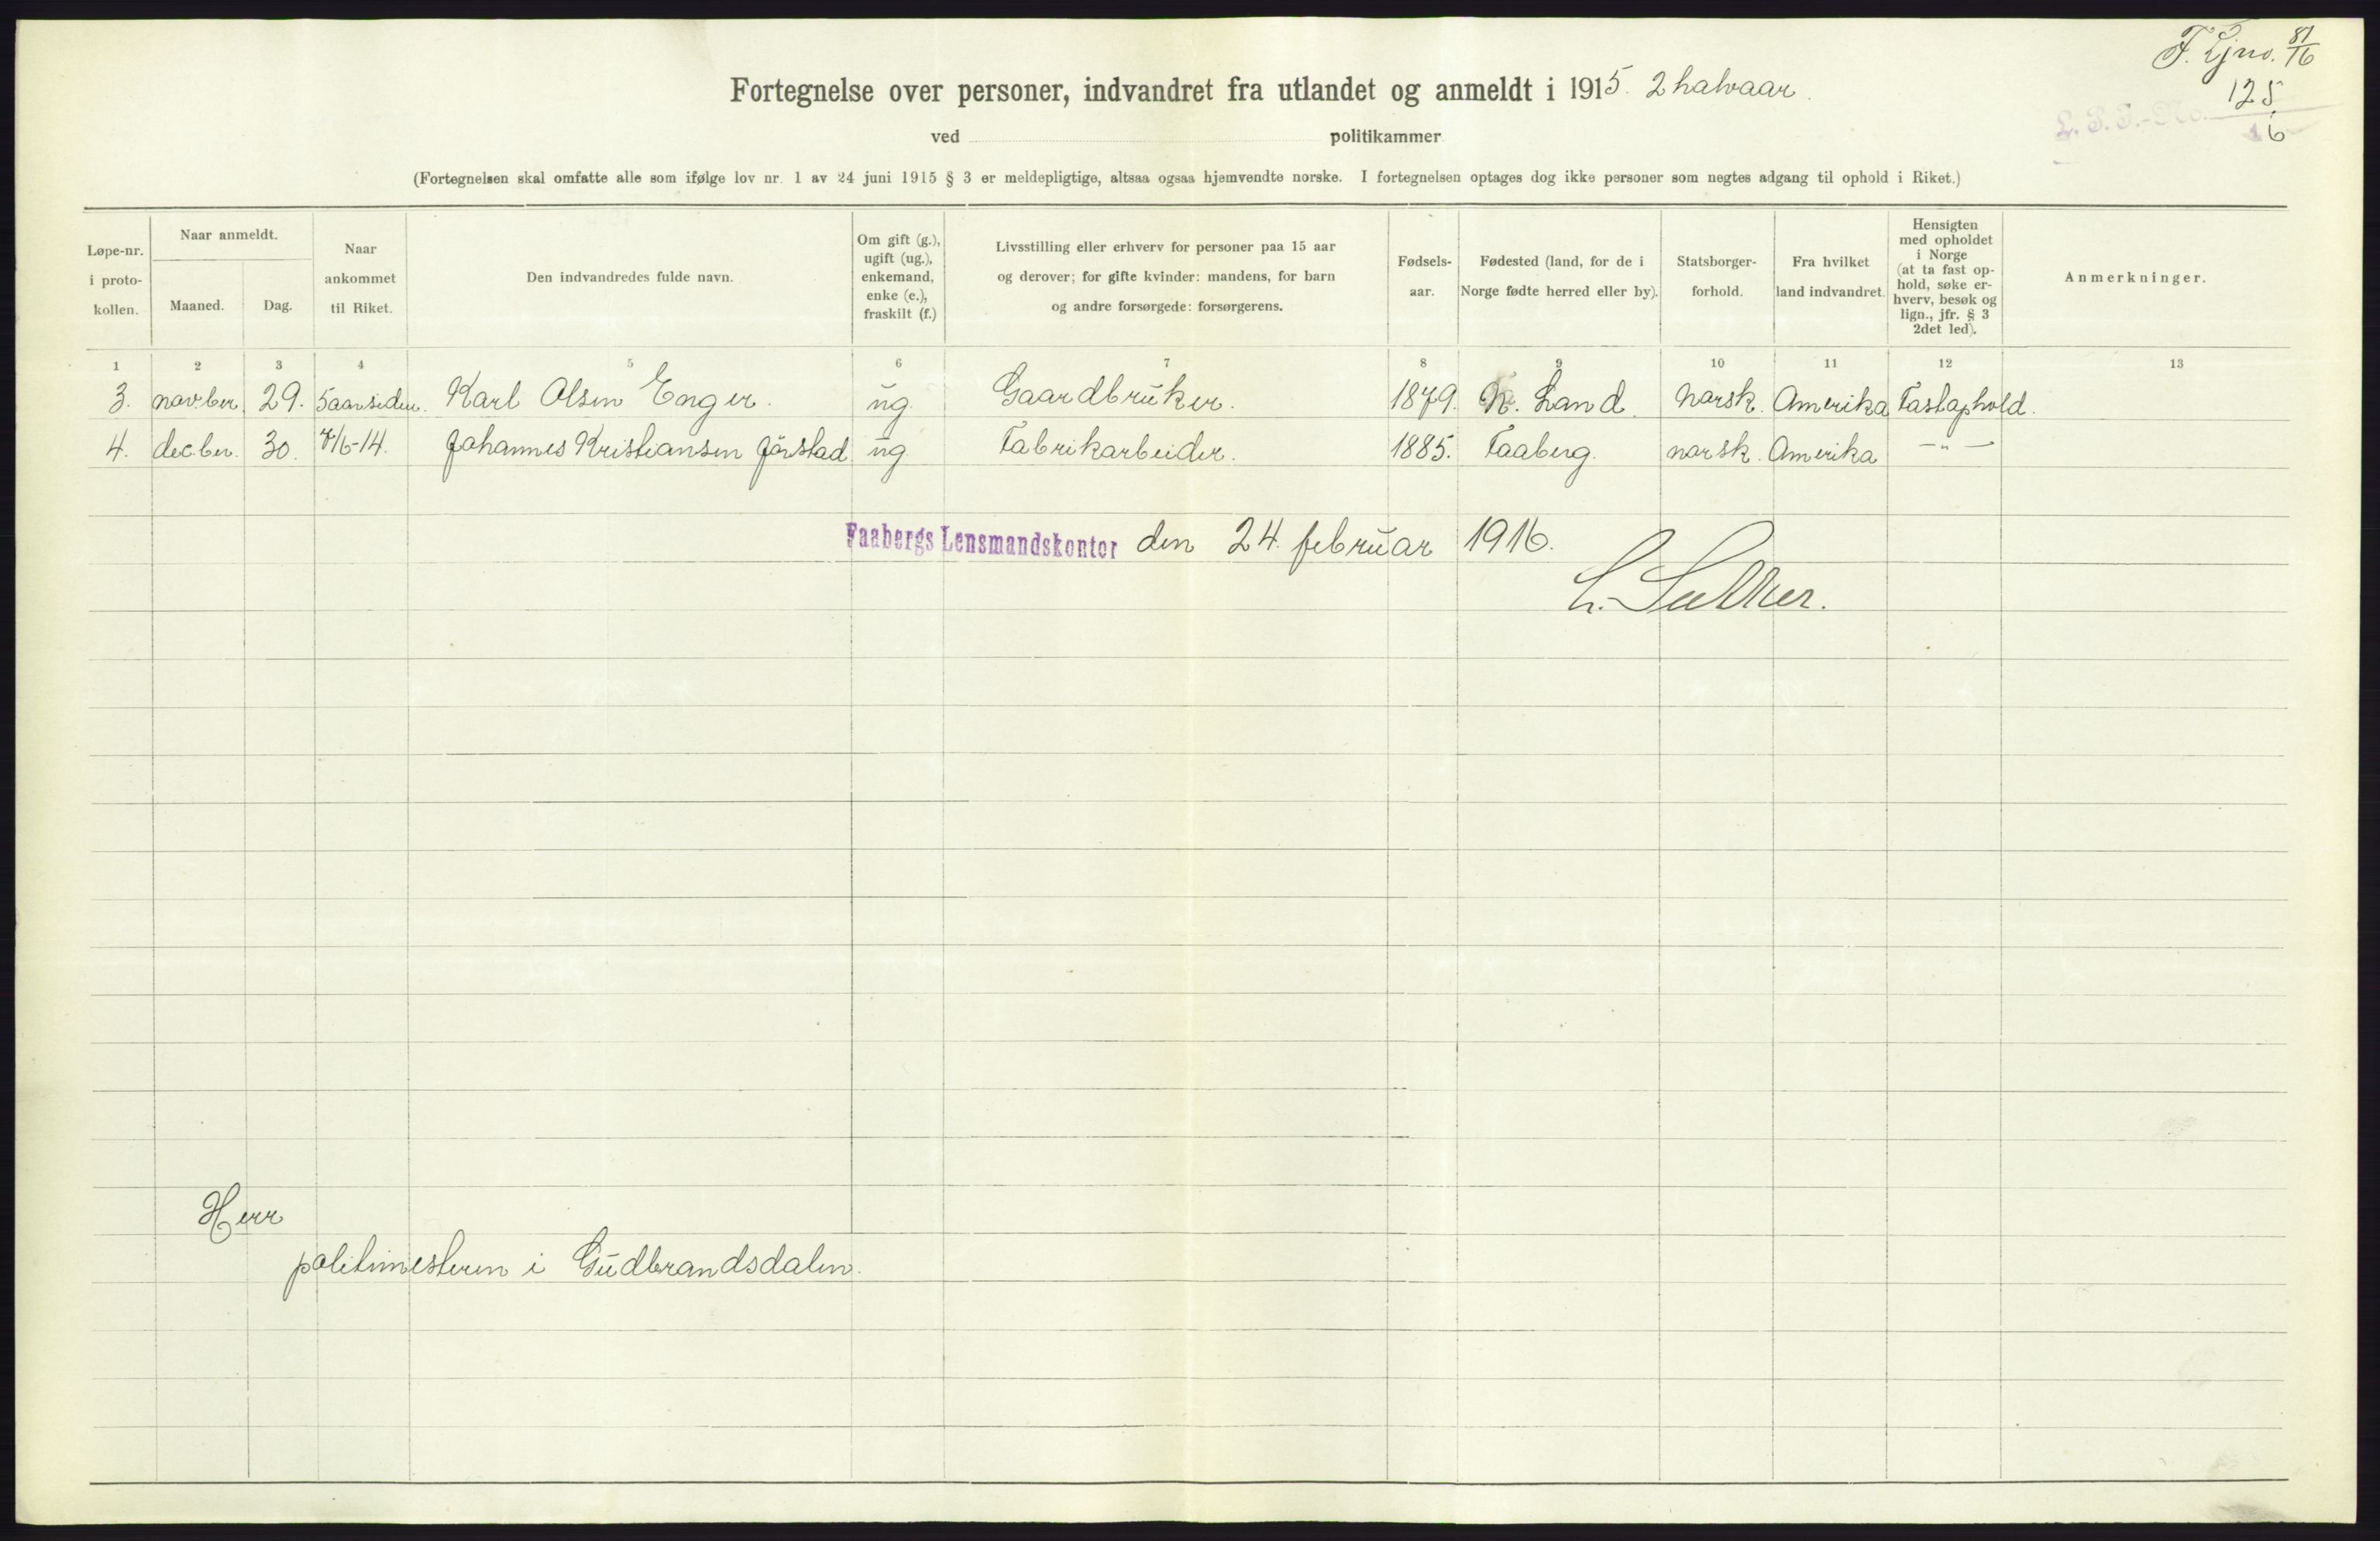 F. Ljno. 81/16
Fortegnelse over personer, indvandret fra utlandet og anmeldt i 1915. 2 halvaar.
125
16
ved politikammer
(Fortegnelsen skal omfatte alle som ifølge lov nr. 1 av 24 juni 1915 § 3 er meldepligtige, altsaa ogsaa hjemvendte norske. I fortegnelsen optages dog ikke personer som negtes adgang til ophold i Riket.)
Løpe-nr. i proto-kollen.
Naar anmeldt.
Maaned.
Dag.
Naar ankommet til Riket.
Den indvandredes fulde navn.
Om gift (g.), ugift (ug.), enkemand, enke (e.), fraskilt (f.)
Livsstilling eller erhverv for personer paa 15 aar og derover; for gifte kvinder: mandens, for barn og andre forsørgede: forsørgerens.
Fødsels-aar.
Fødested (land, for de i Norge fødte herred eller by).
Statsborger-forhold.
Fra hvilket land indvandret.
Hensigten med opholdet i Norge (at ta fast op-hold, søke er-hverv, besøk og lign., jfr. § 3 2det led).
Anmerkninger.
1 2 3 4 5 6 7 8 9 10 11 12 13
3. novber. 29. 5 aar siden. Karl Olsen Enger. ug. Gaardbruker. 1879. N. Land. norsk. Amerika Fastophold.
4. decber. 30. 7/6-14. Johannes Kristiansen Jörstad ug Fabrikarbeider. 1885. Faaberg. norsk. Amerika —"—
Faabergs Lensmandskontor den 24. februar 1916.
Herr
politimesteren i Gudbrandsdalen.